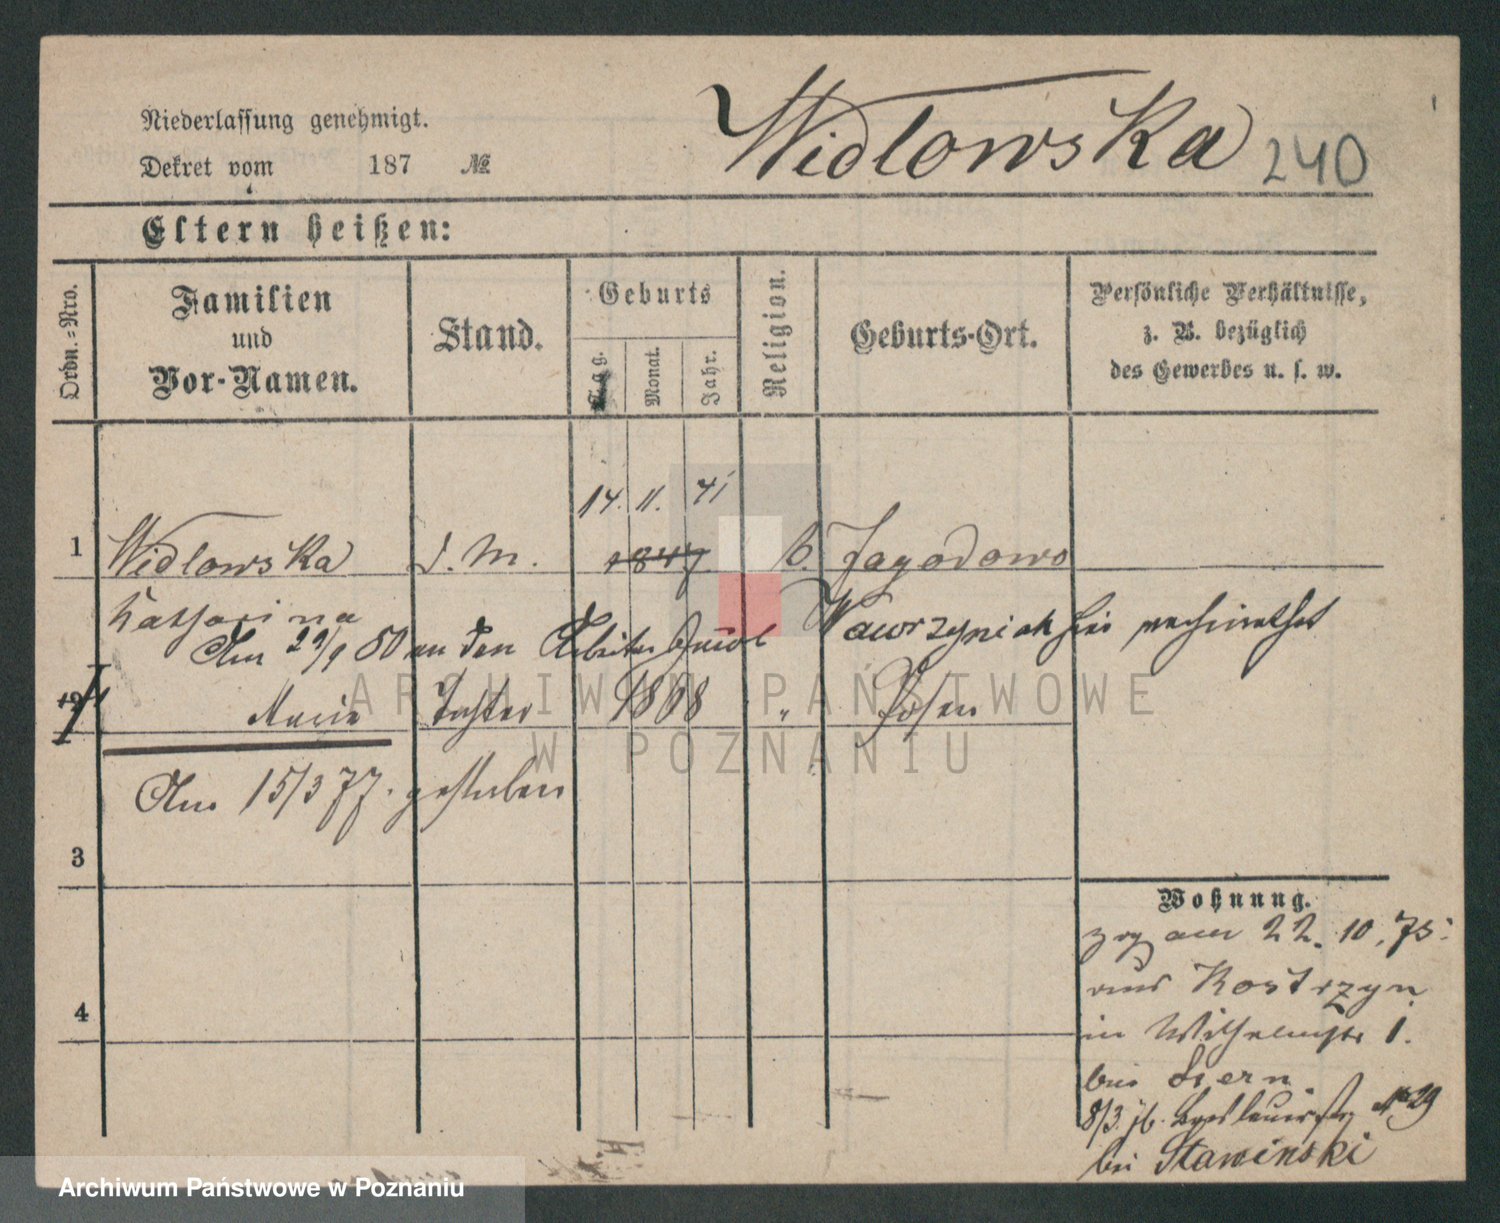 Widlowska 240
Niederlassung genehmigt.
Dekret vom 187 №
Eltern heißen:
Ordn.-Nro.
Familien
und
Vor-Namen.
Stand.
Geburts
Tag.
Monat.
Jahr.
Religion.
Geburts-Ort.
Persönliche Verhältnisse,
z. B. bezüglich
des Gewerbes u. s. w.
14. 11. 41
1 Widlowska d. M. 1847 k. Jagodowo
Katharina
Am 29/9 80 an den Arbeiter Wawrzyniak hier verheirathet
Marie Tochter 1868 " Posen
Am 15/3 77. gestorben
3
4
Wohnung.
zog am 22. 10. 75.
aus Kostrzyn
in Wilhelmstr 1.
bei Stern.
8/3. 76. Breslauerstr № 29
bei Stawinski
ARCHIWUM PAŃSTWOWE
W POZNANIU
Archiwum Państwowe w Poznaniu